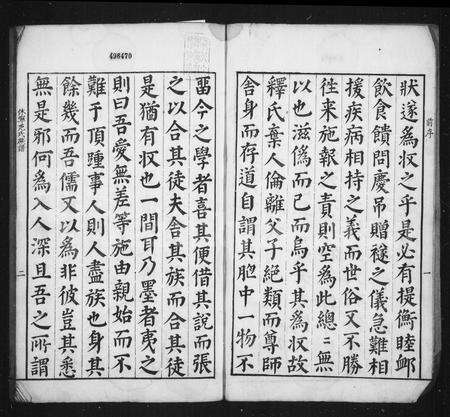 496470
前序
一
狀遂為収之乎是必有提衡睦鄉
飲食饋問慶吊贈襚之儀急難相
援疾病相持之義而世俗又不勝
徃来施報之責則空為此總〻無
以也滋僞而已而烏乎其為収故
釋氏棄人倫離父子絕類而尊師
舍身而存道自謂其胞中一物不
畱今之學者喜其便借其說而張
之以合其徒夫合其族而合其徒
是猶有収也一間耳乃墨者夷之
則曰吾愛無差等施由親始而不
難于頂踵事人則人盡族也身其
餘幾而吾儒又以為非彼豈其悉
無是邪何為入人深且吾之所謂
休寧范氏族譜
二